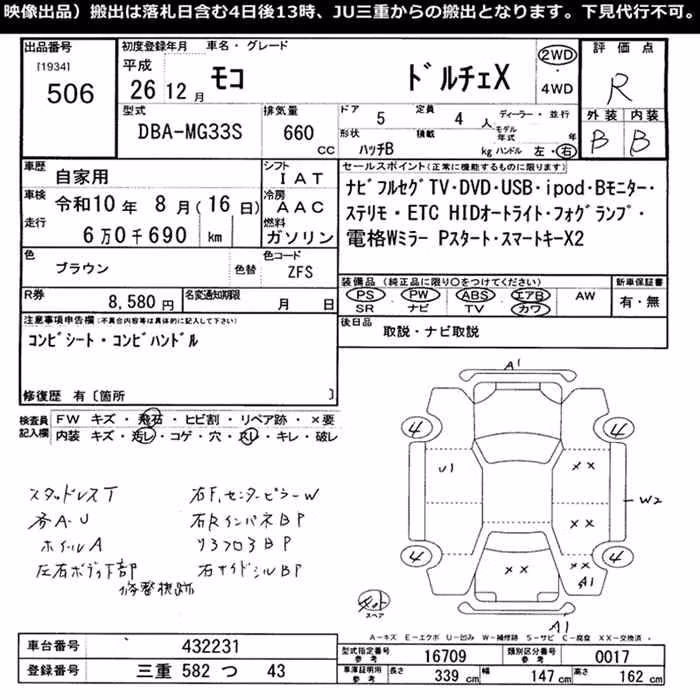 映像出品）搬出は落札日含む4日後13時、JU三重からの搬出となります。下見代行不可。
出品番号 初度登録年月 車名・グレード 評価点
[1934] 506 平成 26 12 月 モコ ドルチェX 2WD・4WD R
型式 排気量 ドア 定員 ディーラー・並行 外装 内装
DBA-MG33S 660 CC 5 4 人 モデル年式 年 B B
形状 積載 ハッチB kg ハンドル 左・右
車歴 自家用 シフト IAT セールスポイント(正常に機能するものに限ります)
車検 令和10年 8月(16日) 冷房 AAC ナビフルセグTV・DVD・USB・ipod・Bモニター・
走行 6万0千690 km 燃料 ガソリン ステリモ・ETC HIDオートライト・フォグランプ・
電格Wミラー Pスタート・スマートキーX2
色 ブラウン 色替 色コード ZFS
装備品 (純正品に限り○をつけてください) 新車保証書
PS PW ABS エアB AW 有・無
SR ナビ TV カワ
R券 8,580円 名変通知期限 月 日
後日品 取説・ナビ取説
注意事項申告欄(不具合内容等は具体的に記入して下さい)
コンビシート・コンビハンドル
修復歴 有〔箇所 〕
検査員記入欄 FW キズ・飛石・ヒビ割・リペア跡・×要
内装 キズ・汚レ・コゲ・穴・スレ・キレ・破レ
スタッドレスT
ホイールA
左右ボディ下部
修整機跡
右F,センターピラーW
右RインパネBP
リアフロアBP
右サイドシルBP
A1
4 4
U1 ××
W2
××
4 4
×× ×× A1
A1
スペア
A－キズ E－エクボ U－凹み W－補修跡 S－サビ C－腐食 XX－交換済
車台番号 432231
登録番号 三重 582 つ 43
型式指定番号 参考 16709 類別区分番号 参考 0017
車庫証明用 参考 長さ 339 cm 幅 147 cm 高さ 162 cm